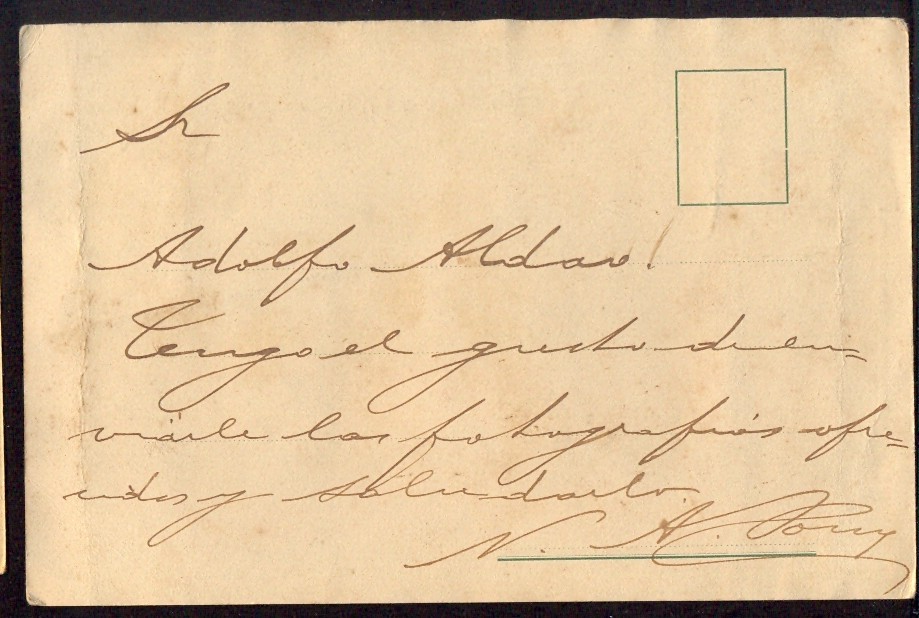 Sr
Adolfo Aldao.
Tengo el gusto de en=
viarle las fotografias ofre=
cidas y saludarlo
N. A.